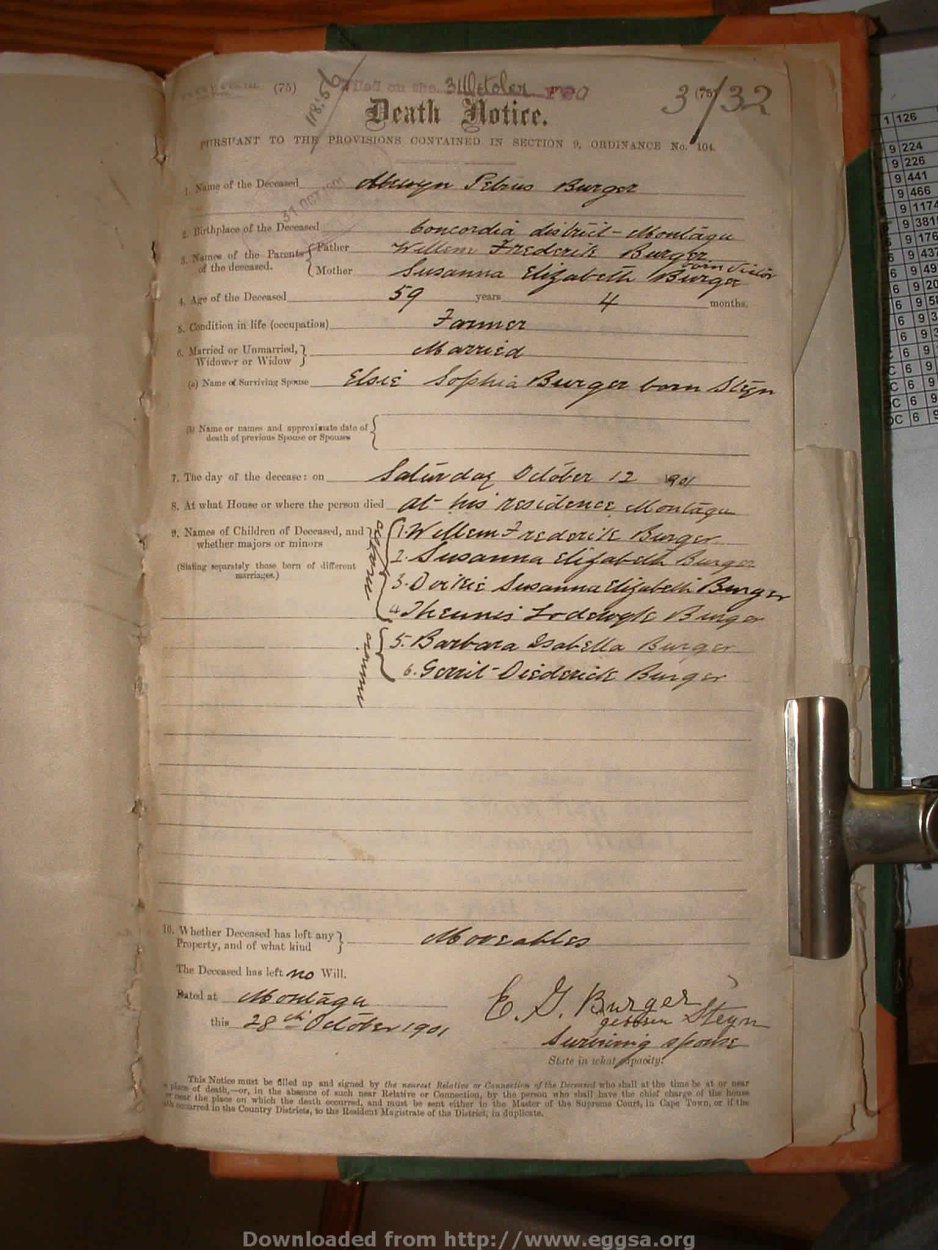 (75)
Filed on the 31 October
3/732
Death Notice.
PURSUANT TO THE PROVISIONS CONTAINED IN SECTION 9, ORDINANCE No. 104.
1. Name of the Deceased Alewyn Petrus Burger
2. Birthplace of the Deceased Concordia district - Montagu
3. Names of the Parents of the deceased. Father Willem Frederik Burger
Mother Susanna Elizabeth Burger born
4. Age of the Deceased 59 years 4 months.
5. Condition in life (occupation) Farmer
6. Married or Unmarried, Widower or Widow Married
(a) Name of Surviving Spouse Elsie Sophia Burger born Steyn
(b) Name or names and approximate date of
death of previous Spouse or Spouses
7. The day of the decease: on Saturday October 12 1901
8. At what House or where the person died at his residence Montagu
9. Names of Children of Deceased, and whether majors or minors
(Stating separately those born of different marriages.)
majors
1. Willem Frederik Burger
2. Susanna Elizabeth Burger
3. Susanna Elizabeth Burger
4. Theunis Lodewyk Burger
minors
5. Barbara Isabella Burger
6. Gerrit Diederick Burger
10. Whether Deceased has left any
Property, and of what kind Moveables
The Deceased has left no Will.
Dated at Montagu
this 28th October 1901
E. S. Burger
geboren Steyn
Surviving spouse
State in what capacity.
This Notice must be filled up and signed by the nearest Relative or Connection of the Deceased who shall at the time be at or near
place of death,—or, in the absence of such near Relative or Connection, by the person who shall have the chief charge of the house
or near the place on which the death occurred, and must be sent either to the Master of the Supreme Court, in Cape Town, or if the
occurred in the Country Districts, to the Resident Magistrate of the District, in duplicate.
1 126
9 224
9 226
9 441
9 466
9 1174
Downloaded from http://www.eggsa.org